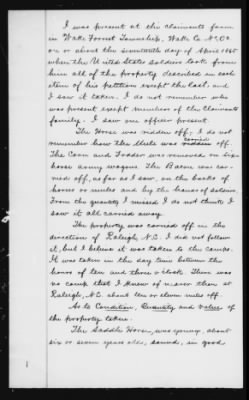 I was present at the claimants farm
in Wake Forest Township, Wake Co N.C.
on or about the seventeenth day of April 1865
when the United States Soldiers took from
him all of the property described in each
item of his petition except the last, and
I saw it taken. I do not remember who
was present except members of the Claimants
family. I saw one officer present.
The Horse was ridden off; I do not
remember how the Mule was carried off.
The Corn and Fodder was removed on six
horse army wagons. The Bacon was car-
ried off, as far as I saw, on the backs of
horses or mules and by the hands of soldiers.
From the quantity I missed I do not think I
saw it all carried away.
The property was carried off in the
direction of Raleigh, N.C. I did not follow
it, but I believe it was taken to the camps.
It was taken in the day time between the
hours of ten and three o'clock. There was
no camp that I knew of nearer than at
Raleigh, N.C. about ten or eleven miles off.
As to Condition, Quantity and value of
the property taken.
The Saddle Horse, was young, about
six or seven years old, sound, in good